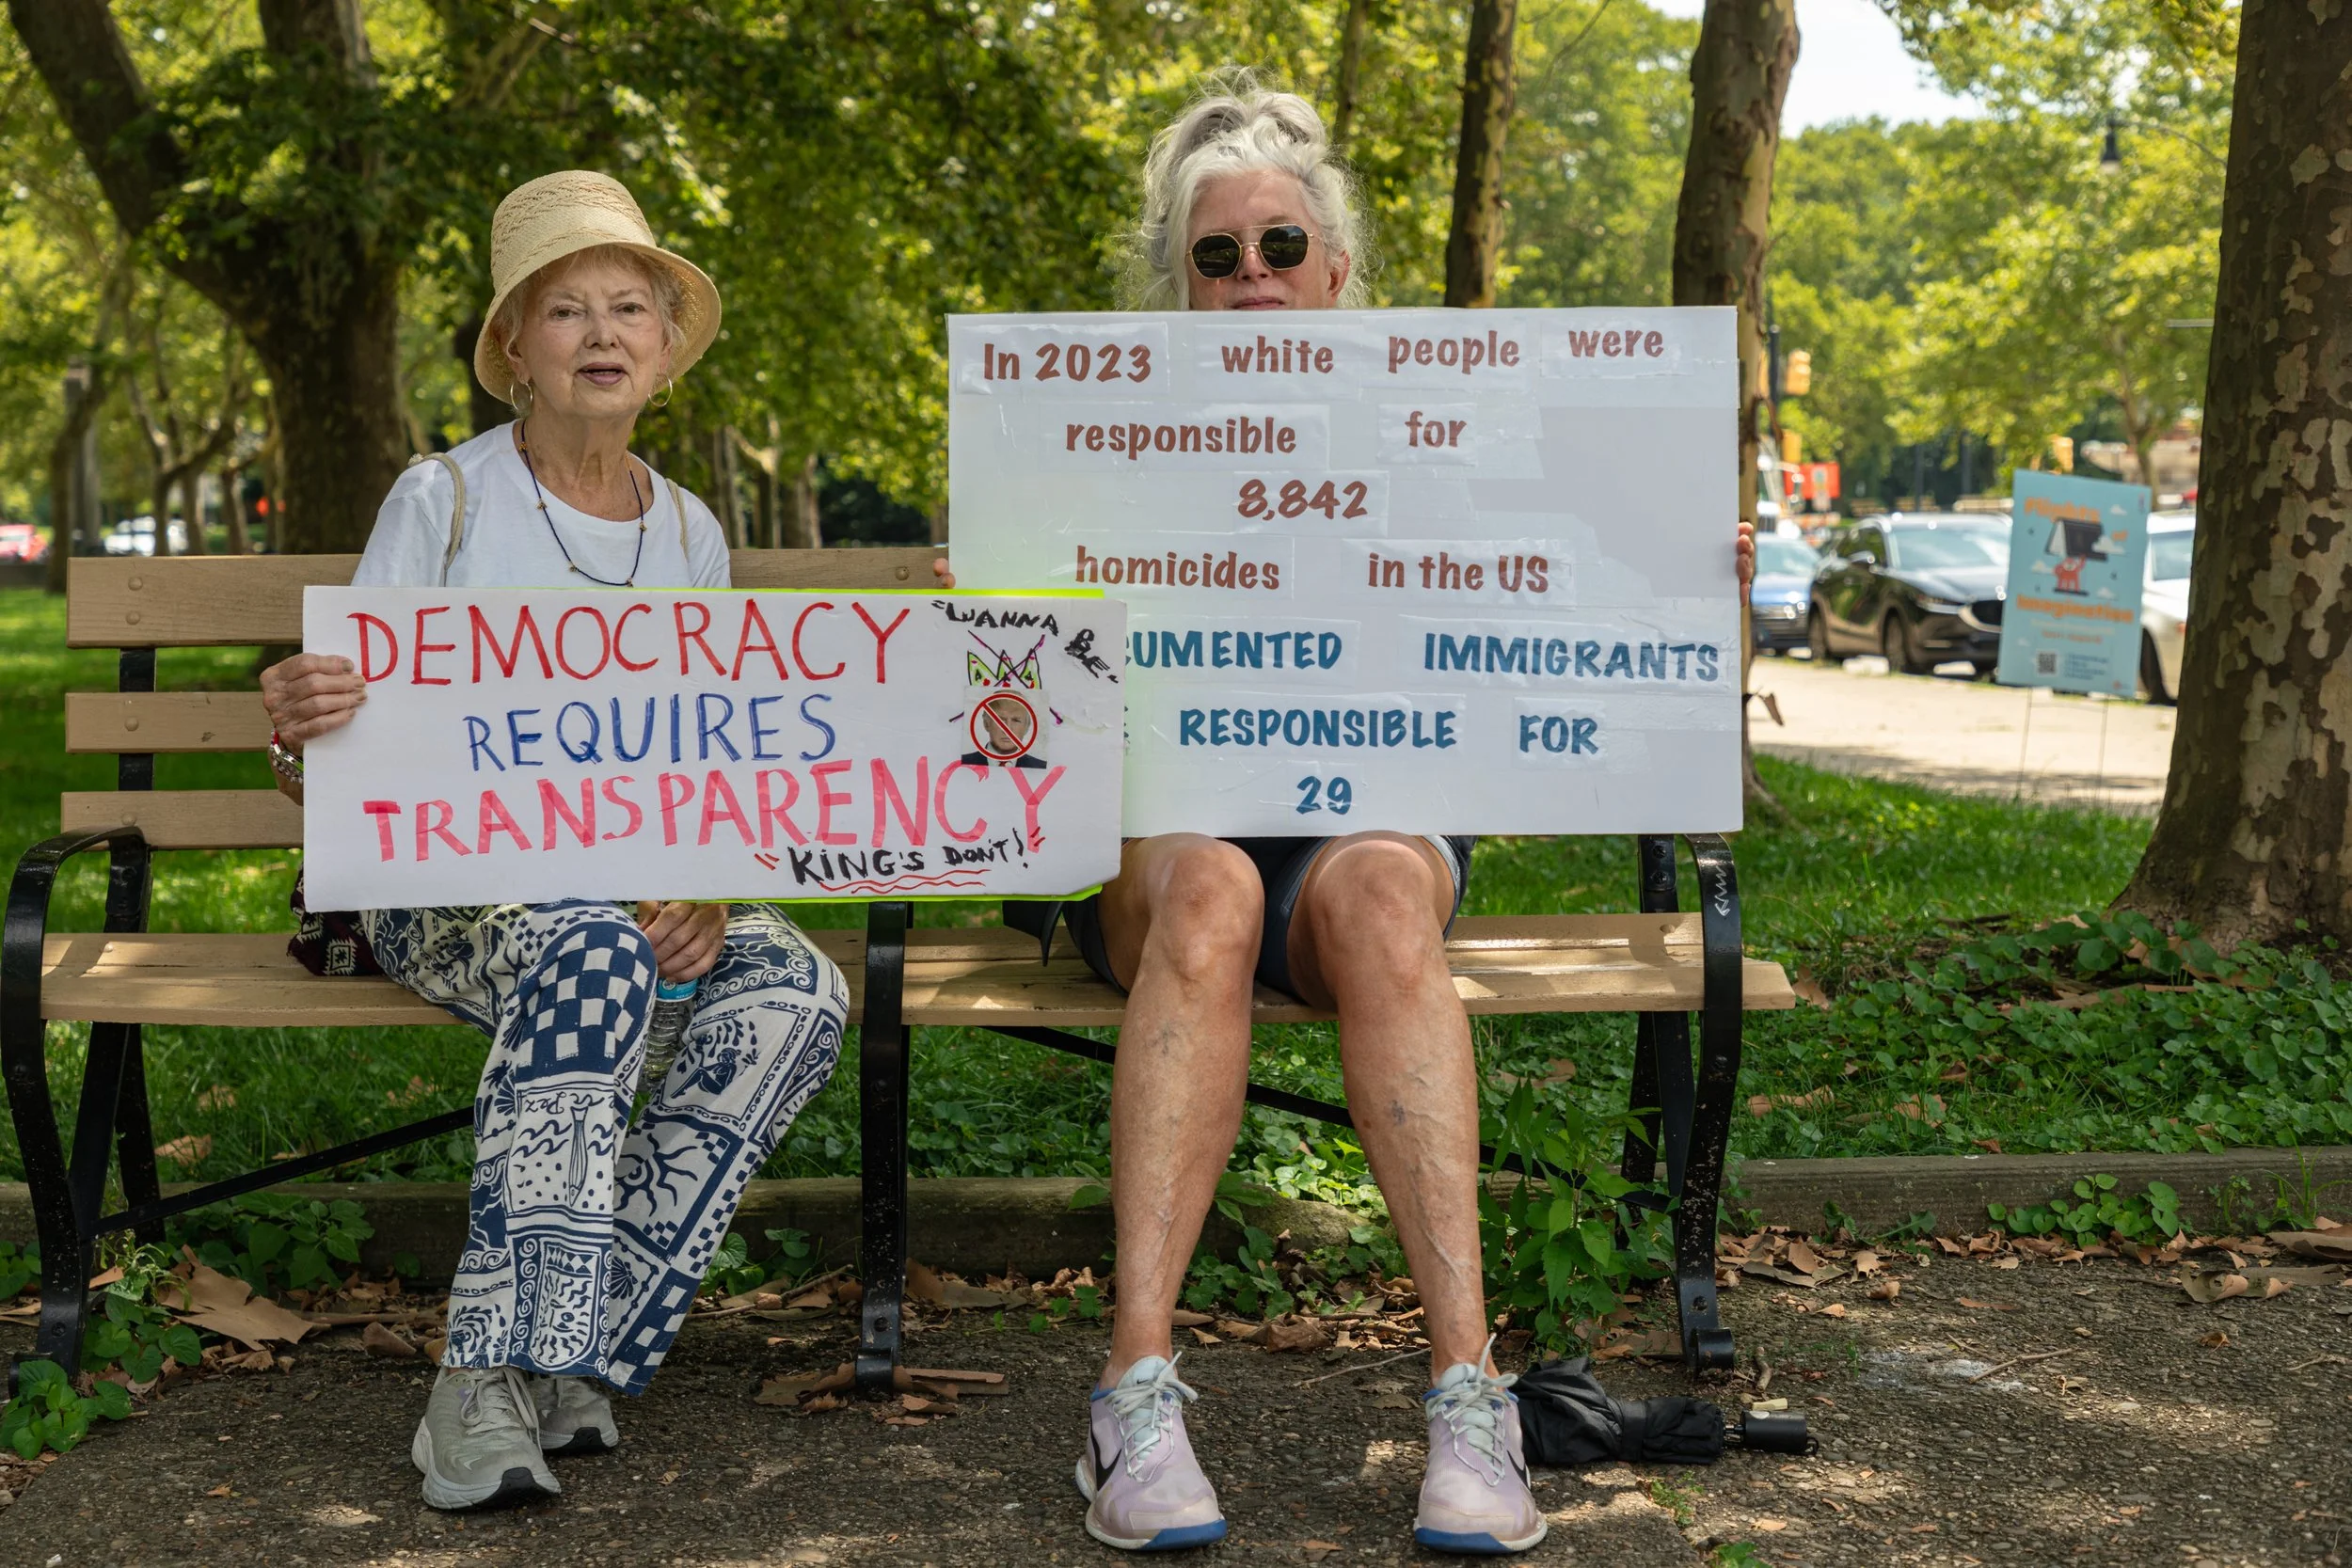 DEMOCRACY
REQUIRES
TRANSPARENCY
"KING'S DON'T!"
"WANNA BE"
In 2023 white people were
responsible for
8,842
homicides in the US
CUMENTED IMMIGRANTS
RESPONSIBLE FOR
29
Flights
Imagination
Paz